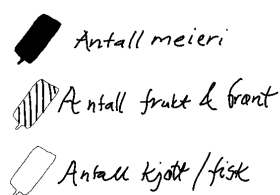 Antall meieri
Antall frukt & grønt
Antall kjøtt/fisk